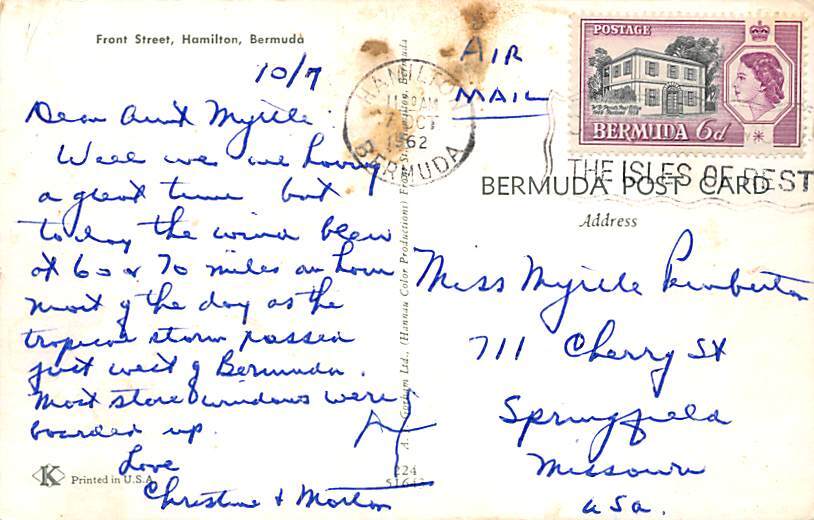 Front Street, Hamilton, Bermuda
10/7
Dear Aunt Myrtle:
Well we are having
a great time but
today the wind blew
at 60 or 70 miles an hour
most of the day as the
tropical storm passed
just west of Bermuda.
Most store windows were
boarded up.
Love
Christine & Morton
K Printed in U.S.A.
Gorham Ltd., (Hannau Color Productions) Front St., Hamilton, Bermuda
224
HAMILTON
AM
7 OCT
1962
BERMUDA
AIR
MAIL
POSTAGE
BERMUDA 6d
THE ISLES OF REST
BERMUDA POST CARD
Address
Miss Myrtle Pemberton
711 Cherry St
Springfield
Missouri
USA.